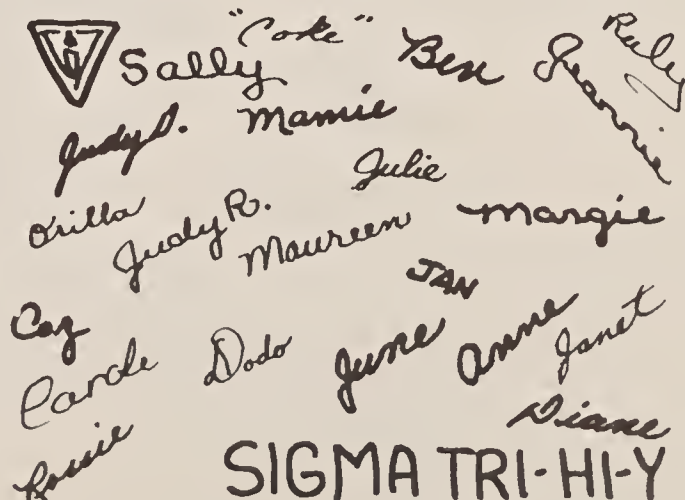 "Coke"
Sally
Ben
Jeannie
Judy D.
Mamie
Julie
Orilla
Judy R.
Maureen
Margie
JAN
Caz
Carole
Dodo
June
Anne
Janet
Diane
SIGMA TRI-HI-Y